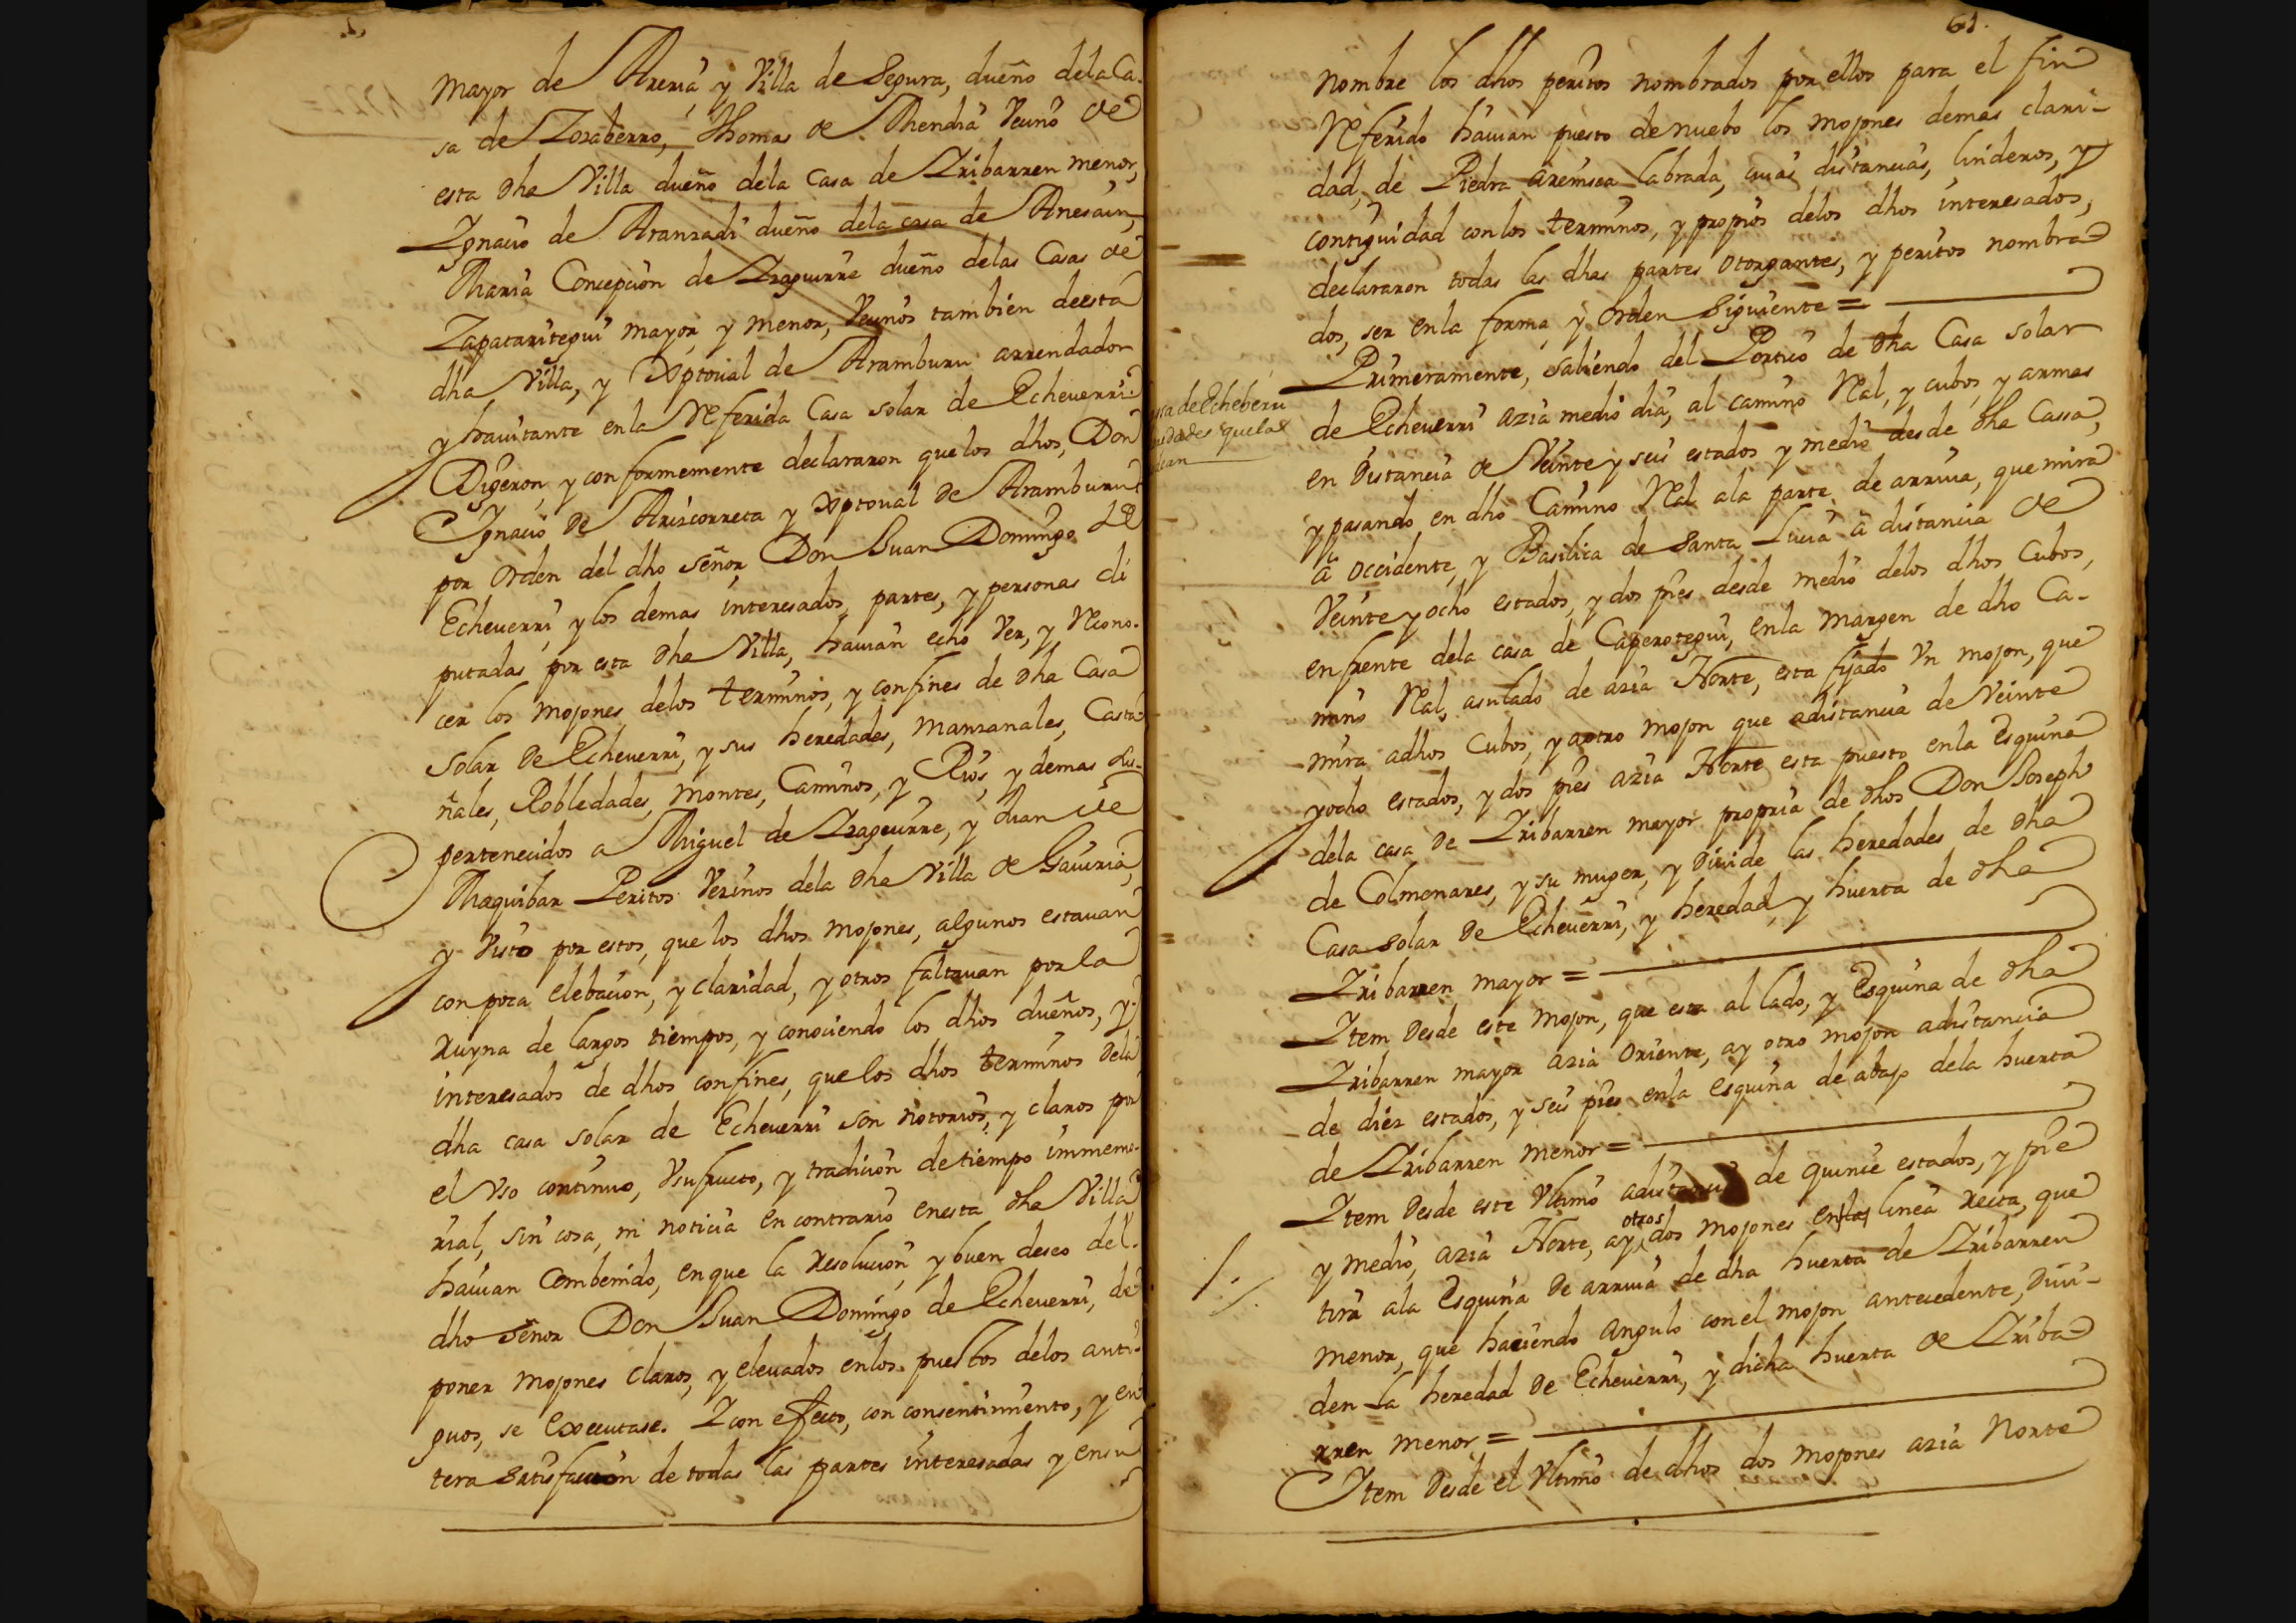 mayor de Areria, y Villa de Segura, dueño dela Ca-
sa de Loraberro, Thomas de Mendia Veçino de
esta dha Villa dueño dela Casa de Iribarren menor,
Ignacio de Aranzadi dueño dela casa de Anesain,
Maria Concepcion de Izaguirre dueño delas Casas de
Zapataritegui mayor, y menor, Veçinos tambien deesta
dha Villa, y Xptoual de Aramburu arrendador
y hauitante enla Referida Casa solar de Echeuerri:
Digeron, y conformemente declararon quelos dhos, Don
Ignacio de Ariscorreta y Xptoual de Aramburu
por orden del dho señor Don Juan Domingo de
Echeuerri, y los demas interesados, partes, y personas di
putadas por esta dha Villa, hauian echo Ver, y Recono-
cer los mojones delos terminos, y confines de dha Casa
solar de Echeuerri, y sus heredades, manzanales, Casta
ñales, Robledades, montes, Caminos, y Rios, y demas
pertenecidos a Miguel de Izaguirre, y Juan de
Maquibar Peritos Vezinos dela dha Villa de Gauiria,
y Visto por estos, que los dhos mojones, algunos estauan
con poca elebacion, y claridad, y otros faltauan por la
ruyna de largos tiempos, y conociendo los dhos dueños, y
interesados de dhos confines, que los dhos terminos dela
dha casa solar de Echeuerri son notorios, y claros por
el Vso continuo, Vsufructo, y tradicion de tiempo immemo-
rial, sin cosa, ni noticia en contrario enesta dha Villa
hauian Combenido, en que la resolucion, y buen deseo del
dho señor Don Juan Domingo de Echeuerri, de
poner mojones claros, y eleuados enlos puestos delos anti-
guos, se executase. I con effecto, con consentimiento, y en
tera satisfaccion de todas las partes interesadas y ensu
61.
nombre los dhos peritos nombrados por ellos para el fin
Referido hauian puesto denuebo los mojones demas clari-
dad, de Piedra arenisca labrada, cuias distancias, linderos, y
contiguidad con los terminos, y propios delos dhos interesados,
declararon todas las dhas partes otorgantes, y peritos nombra
dos, ser enla forma, y orden siguiente =
Primeramente, saliendo del Portico de dha Casa solar
de Echeuerri azia medio dia, al camino Real, y cubos, y armas
en Distancia de Veinte y seis estados y medio desde dha Cassa,
y pasando en dho Camino Real ala parte, de arriua, que mira
a occidente, y Basilica de Santa Lucia a distancia de
Veinte y ocho estados, y dos pies desde medio delos dhos Cubos,
en frente dela casa de Caperotegui, enla margen de dho Ca-
mino Real, asulado de azia Norte, esta fijado Vn mojon, que
mira adhos Cubos, y aotro mojon que adistancia de Veinte
yocho estados, y dos pies azia Norte esta puesto enla esquina
dela casa de Iribarren mayor propria de dhos Don Joseph
de Colmenares, y su muger, y Diuide las heredades de dha
Casa solar de Echeuerri, y heredad, y huerta de dha
Iribarren mayor =
Item desde este mojon, que esta al lado, y Esquina de dha
Iribarren mayor azia oriente, ay otro mojon adistancia
de diez estados, y seis pies enla esquina de abajo dela huerta
de Iribarren menor =
Item desde este Vltimo adistancia de quince estados, y pie
y medio, azia Norte, ay otros dos mojones en linea recta, que
tira ala Esquina de arriua de dha huerta de Iribarren
menor, que haciendo angulo con el mojon antecedente, Diui-
den la heredad de Echeuerri, y dicha huerta de Iriba
rren menor =
Item desde el Vltimo de dhos dos mojones azia Norte
de Echeberri
que las